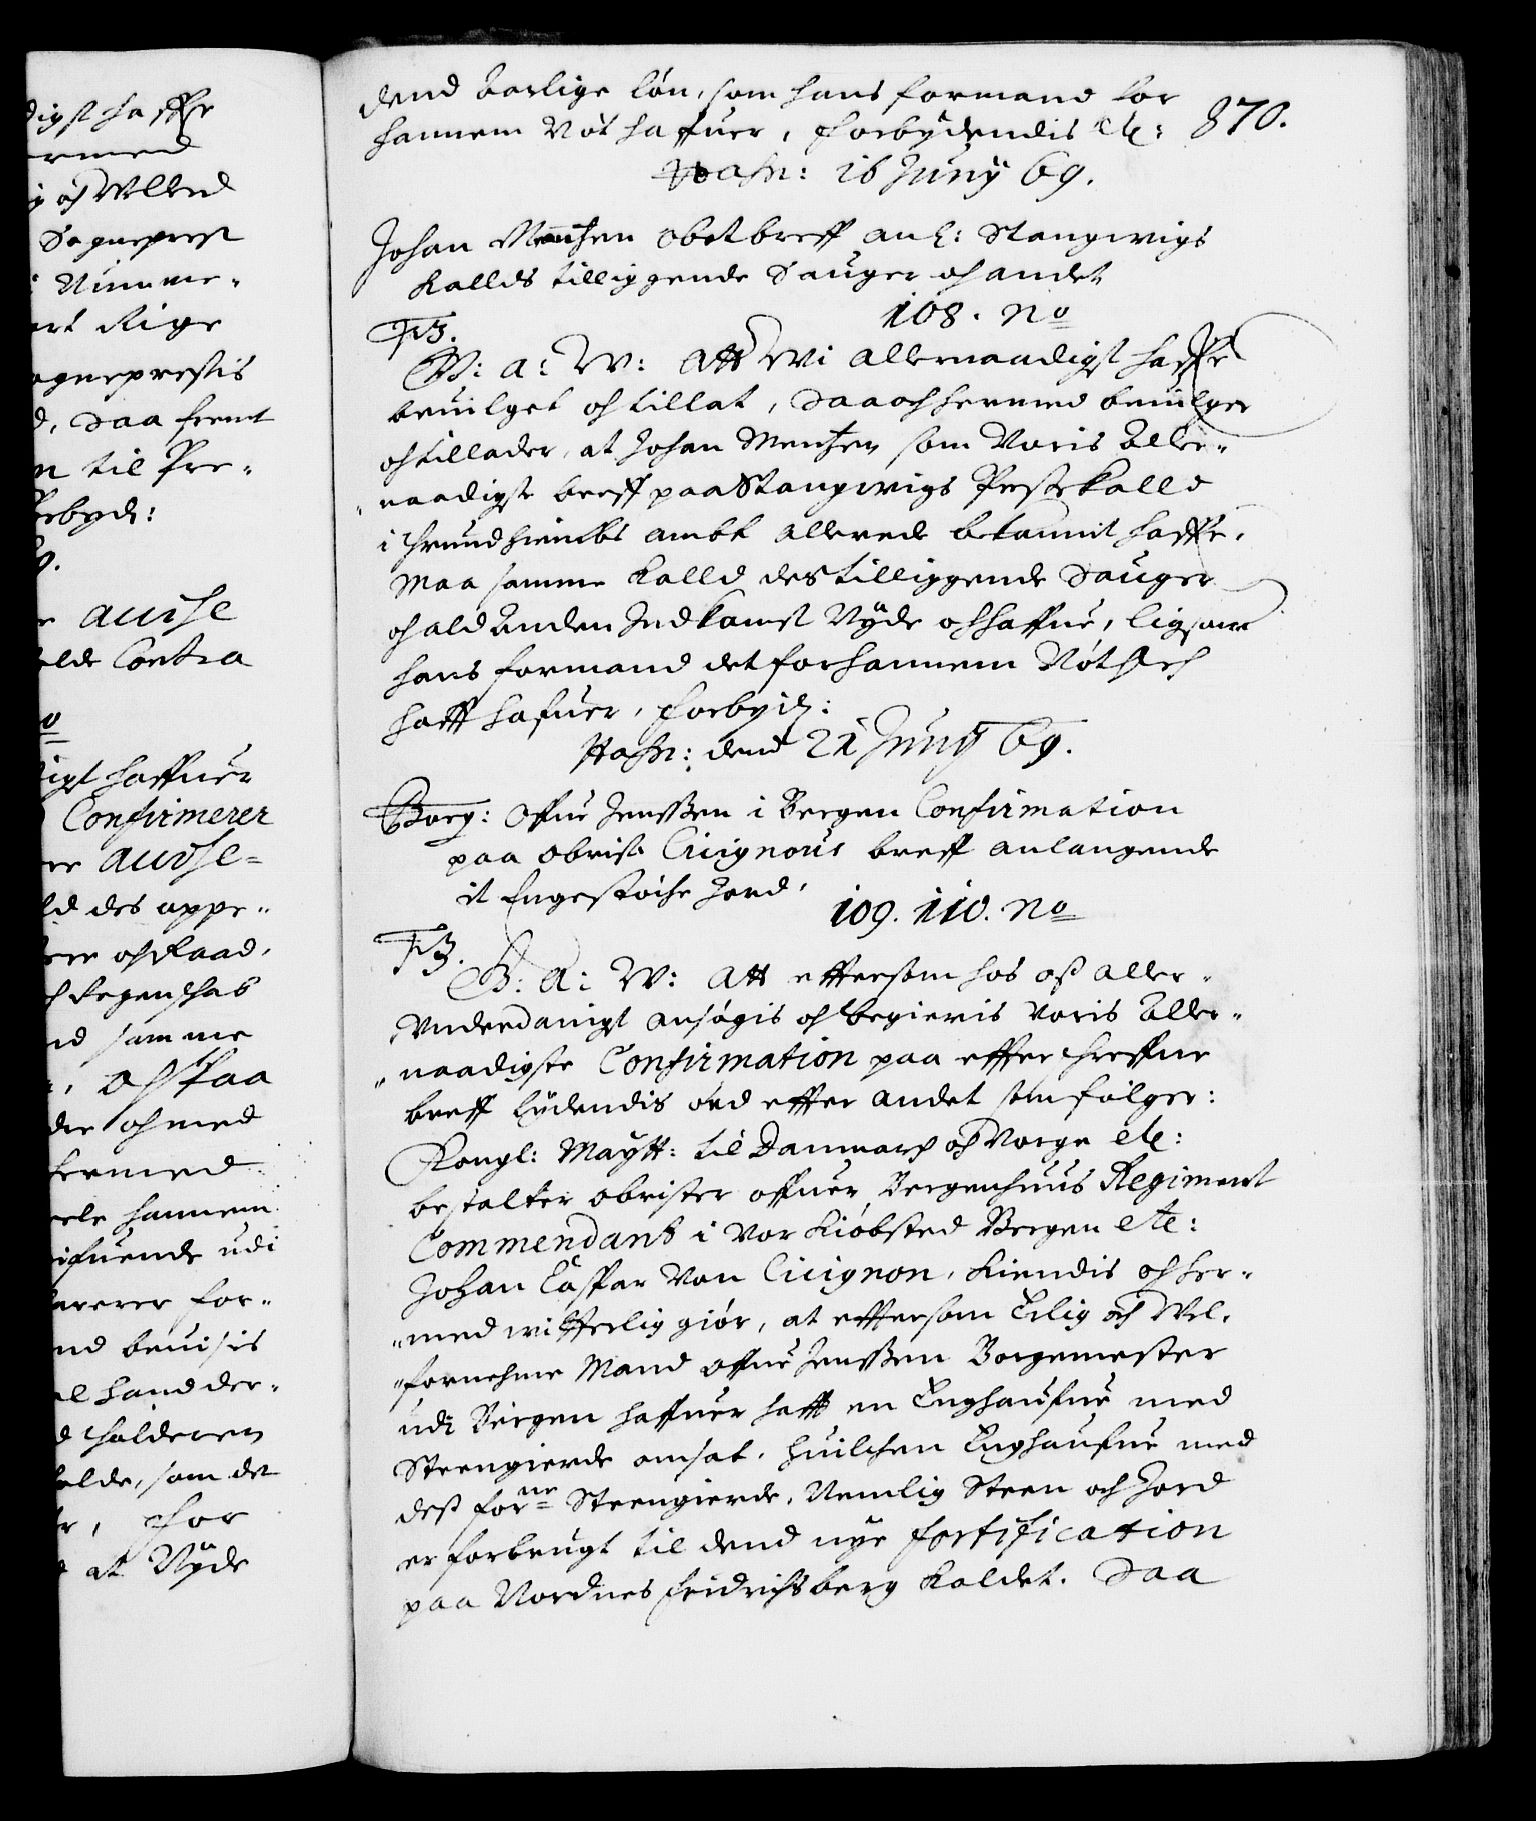 digst haffr
ermed
ij och Welerd
Sognepresst
Numme-
ert Rige
ognepresstis
d, saa fremt
n til Pre-
Forbyd:
9.
aucse
elde Contra
o
digt haffuer
Confirmerer
er aucse-
ld des appe-
ere och Raad,
Regenschab
nd samme
, och saa
der och med
hermed
ele hannem
ifuende udi
arerer for-
nd beuisis
el hand der-
d holderen
elde, som det
r, for
at Nyde
870.
dend Aarlige løn, som hans formand for
hannem Nøt haffuer, Forbydendis etc:
Hafn: 16 Junij 69.
Johan Mentzen obet breff anl: Stangwigs
Kalds tilliggende Sauger och andet
108. No
F3.
G: A: W: Att Wi allernaadigst haffr
beuilget och tillat, Saa och hermed beuilger
och tillader, at Johan Mentzen som Voris Aller-
naadigste breff paa Stangwigs Prestekalld
i Thrundhiembs ambt allerede bekommit haffr,
Maa samme Kalld des tilliggende Sauger
och ald Anden Indkomst Nyde och haffue, ligsom
hans formand det for hannem Nøt och
hafft hafuer, Forbyd:
Hafn: dend 21 Junij 69.
Borg: Offue Jenssen i Bergen Confirmation
paa obrist Cicignons breff anlangende
it Engestøche Jord,
109. 110. No
F3.
G: A: W: Att effterson hos oss aller-
Underdanigst ansøgis och begieris Voris Aller-
naadigste Confirmation paa effterschreffne
breff lydendis ord effter andet som følger:
Kongl: Maytt: til Danmarch och Norge etc:
bestalter obrister offuer Bergenhuus Regiment
Commendant i Vor Kiøbsted Bergen etc:
Johan Caspar Von Cicignon, Kiendis och her-
med witterlig giør, at efftersom Erlig och Vel-
fornehme Mand Offue Jenssen Borgemester
udi Bergen haffuer hafft en Enghaufue med
Steengierde omsat, huilchen Enghaufue med
dess forne Steengierde, Nemlig Steen och Jord
er forbrugt til dend nye fortification
paa Nordnes Fridrichsberg Kaldet. Saa